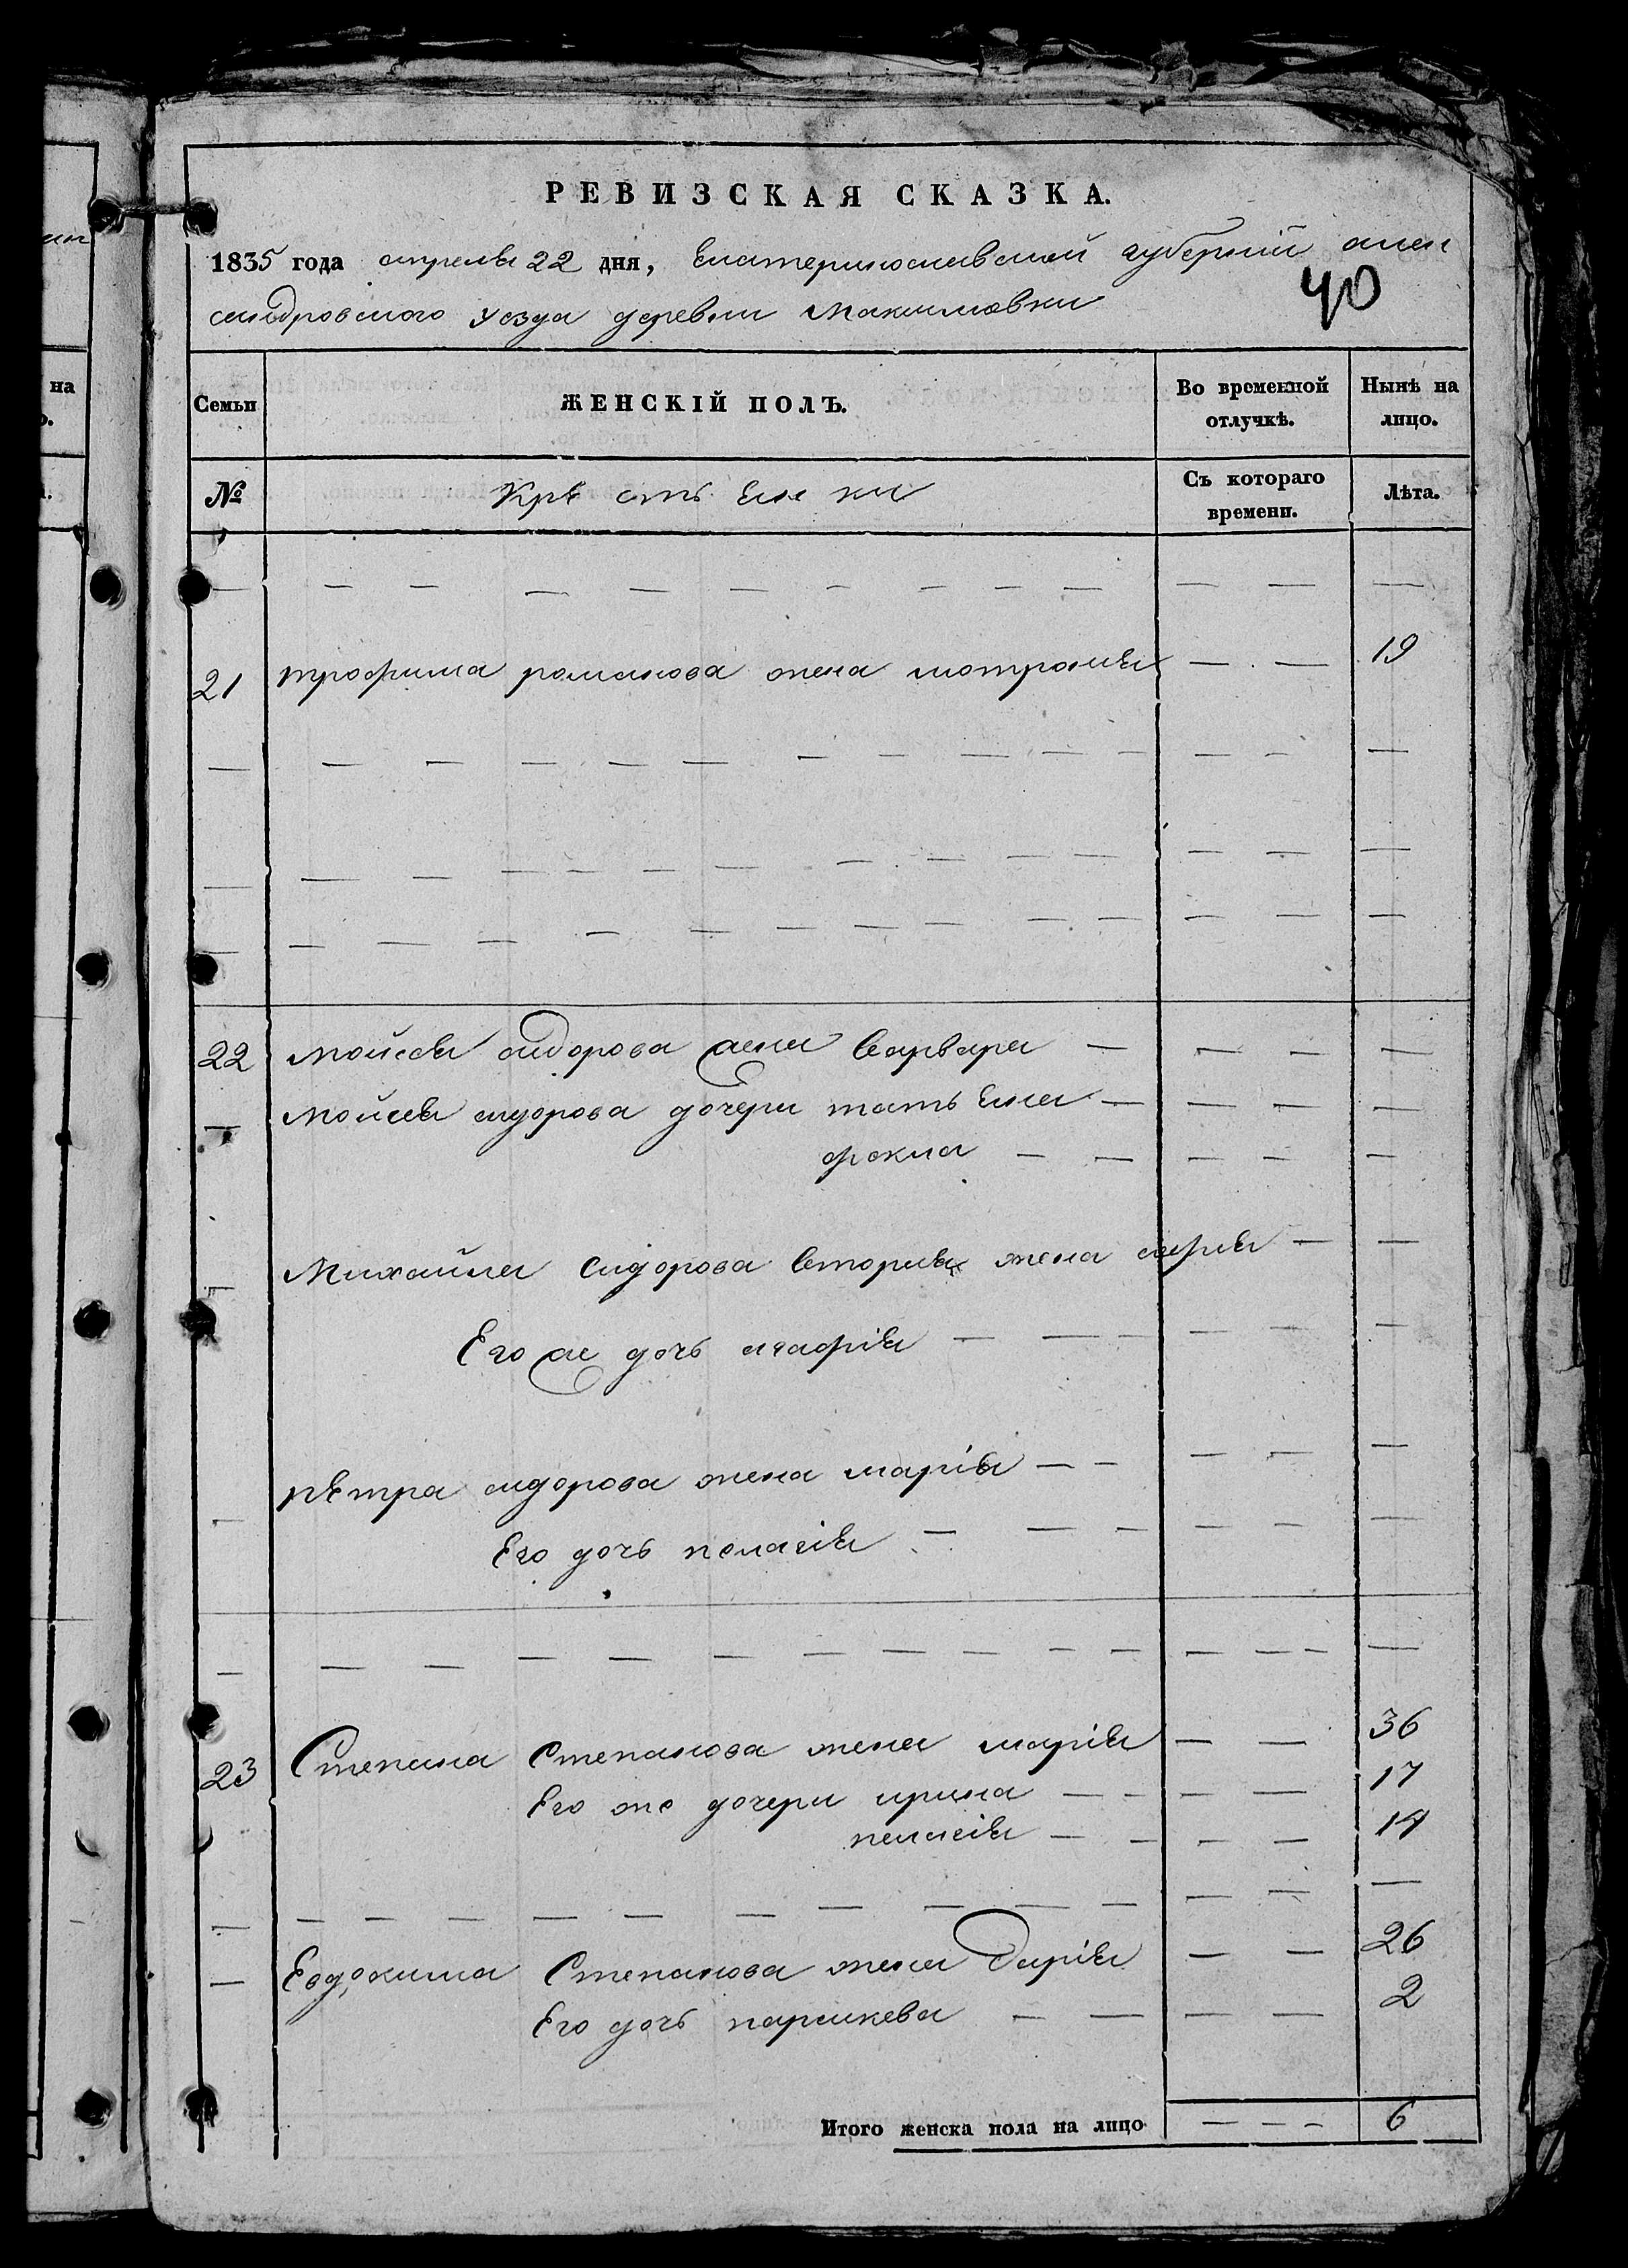 РЕВИЗСКАЯ СКАЗКА.
1835 года апреля 22 дня, Екатеринославской губернии алек
сандровского уезда деревни Максимовки
40
Семьи ЖЕНСКІЙ ПОЛЪ. Во временной отлучкѣ. Нынѣ на лицо.
№ Крѣстьянки Съ котораго времени. Лѣта.
21 трофима романова жена мотрона — — 19
22 Мойсея сидорова жена варвара — — — —
— Мойсея сидорова дочери татьяна — — — —
фекла — — — — —
— Михайла сидорова вторая жена — —
Его же дочь агафія — — — — — —
— петра сидорова жена марія — — — — —
Его дочь пелагія — — — — — —
23 Степана Степанова жена марія — — 36
Его же дочери ирина — — — — 17
пелагія — — — — 14
— Евдокима Степанова жена дарія — — 26
Его дочь параскева — — — — 2
Итого женска пола на лицо — — — 6
на